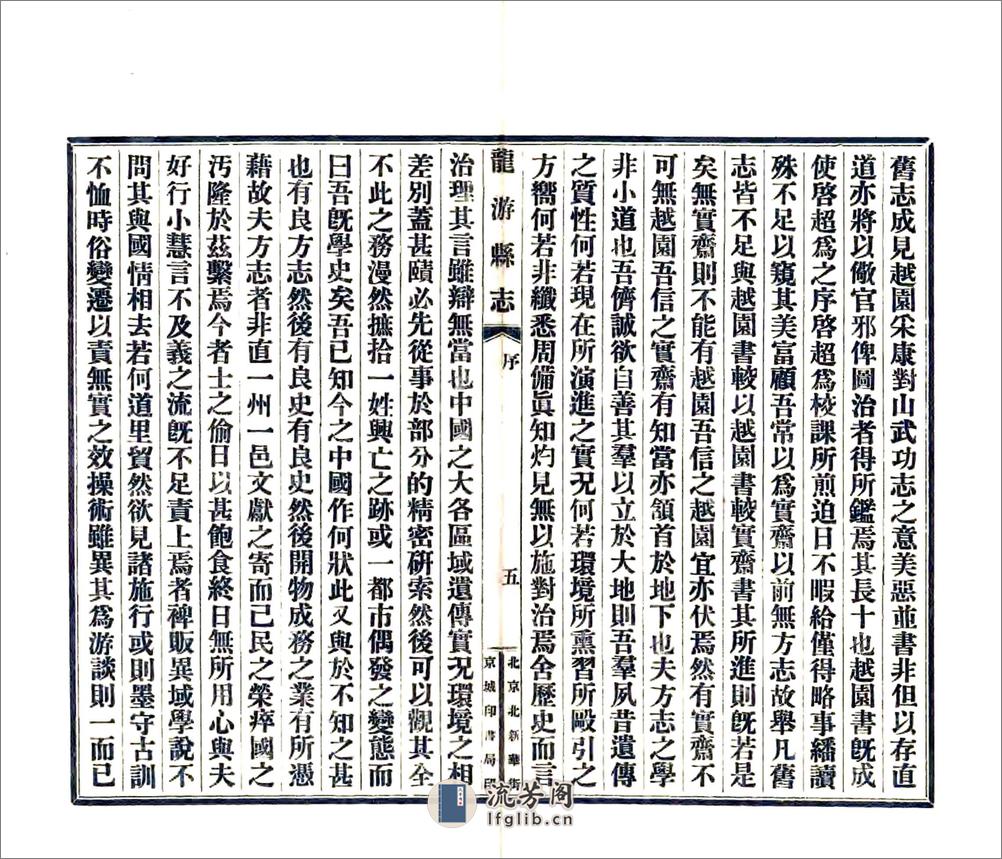 舊志成見越園宋康對山武功志之意美惡並書非但以存直
道亦將以儆官邪俾圖治者得所鑑焉其長十也越園書旣成
使啓超爲之序啓超爲校課所煎迫日不暇給僅得略事繙讀
殊不足以窺其美富顧吾常以爲實齋以前無方志故舉凡舊
志皆不足與越園書較以越園書較實齋書其所進則旣若是
矣無實齋則不能有越園吾信之越園宜亦伏焉然有實齋不
可無越園吾信之實齋有知當亦頷首於地下也夫方志之學
非小道也吾儕誠欲自善其羣以立於大地則吾羣夙昔遺傳
之質性何若現在所演進之實況何若環境所熏習所毆引之
方嚮何若非纖悉周備眞知灼見無以施對治焉舍歷史而言
龍游縣志
序
五
北京北新華街
京城印書局印
治理其言雖辯無當也中國之大各區域遺傳實況環境之相
差別蓋甚賾必先從事於部分的精密硏索然後可以觀其全
不此之務漫然摭拾一姓興亡之跡或一都市偶發之變態而
曰吾旣學史矣吾已知今之中國作何狀此又與於不知之甚
也有良方志然後有良史有良史然後開物成務之業有所憑
藉故夫方志者非直一州一邑文獻之寄而已民之榮瘁國之
汚隆於茲繫焉今者士之偷日以甚飽食終日無所用心與夫
好行小慧言不及義之流旣不足責上焉者裨販異域學說不
問其與國情相去若何道里貿然欲見諸施行或則墨守古訓
不恤時俗變遷以責無實之效操術雖異其爲游談則一而已
流芳閣
lfglib.cn